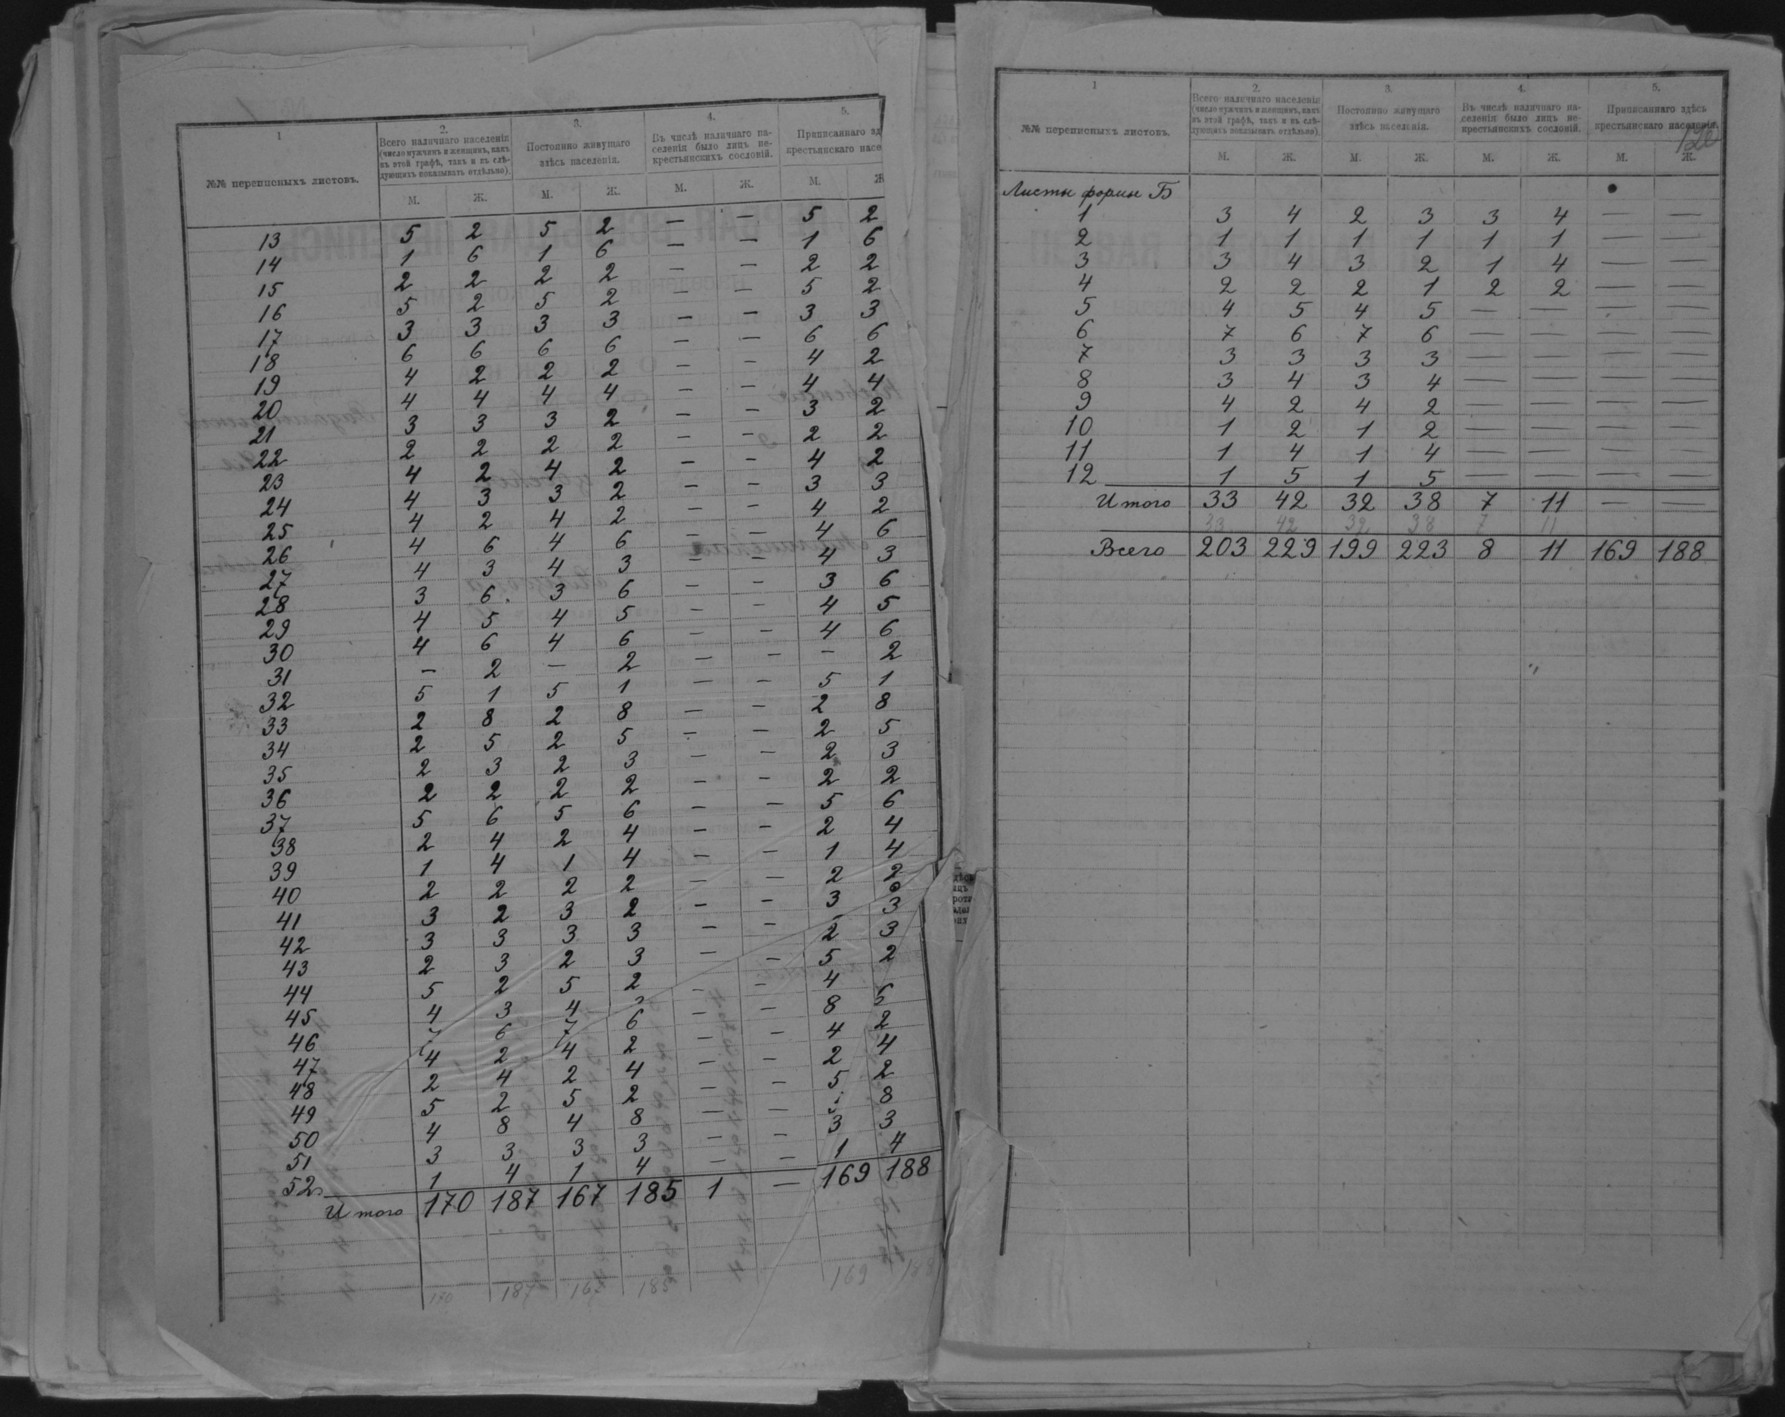 1
2.
3.
4.
5.
№№ переписныхъ листовъ.
Всего наличнаго населенія
(число мужчинъ и женщинъ, какъ
въ этой графѣ, такъ и въ слѣ-
дующихъ показывать отдѣльно).
Постоянно живущаго
здѣсь населенія.
Въ числѣ наличнаго на-
селенія было лицъ не-
крестьянскихъ сословій.
Приписаннаго зд
крестьянскаго насе
М. Ж. М. Ж. М. Ж. М. Ж
13 5 2 5 2 — — 5 2
14 1 6 1 6 — — 1 6
15 2 2 2 2 — — 2 2
16 5 2 5 2 — — 5 2
17 3 3 3 3 — — 3 3
18 6 6 6 6 — — 6 6
19 4 2 2 2 — — 4 2
20 4 4 4 4 — — 4 4
21 3 3 3 2 — — 3 2
22 2 2 2 2 — — 2 2
23 4 2 4 2 — — 4 2
24 4 3 3 2 — — 3 3
25 4 2 4 2 — — 4 2
26 4 6 4 6 — 4 6
27 4 3 4 3 — — 4 3
28 3 6 3 6 — — 3 6
29 4 5 4 5 — — 4 5
30 4 6 4 6 — — 4 6
31 — 2 — 2 — — — 2
32 5 1 5 1 — — 5 1
33 2 8 2 8 — — 2 8
34 2 5 2 5 — — 2 5
35 2 3 2 3 — — 2 3
36 2 2 2 2 — — 2 2
37 5 6 5 6 — — 5 6
38 2 4 2 4 — — 2 4
39 1 4 1 4 — — 1 4
40 2 2 2 2 — — 2 2
41 3 2 3 2 — — 3 3
42 3 3 3 3 — — 2 3
43 2 3 2 3 — — 5 2
44 5 2 5 2 — — 4
45 4 3 4 — — 8 5
46 7 6 7 6 — — 4 2
47 4 2 4 2 — — 2 4
48 2 4 2 4 — — 5 2
49 5 2 5 2 — — 8
50 4 8 4 8 — — 3 3
51 3 3 3 3 — — 1 4
52 1 4 1 4
Итого 170 187 167 185 1 — 169 188
170 187 167 185 169 188
1
2.
3.
4.
5.
№№ переписныхъ листовъ.
Всего наличнаго населенія
(число мужчинъ и женщинъ, какъ
въ этой графѣ, такъ и въ слѣ-
дующихъ показывать отдѣльно).
Постоянно живущаго
здѣсь населенія.
Въ числѣ наличнаго на-
селенія было лицъ не-
крестьянскихъ сословій.
Приписаннаго здѣсь
крестьянскаго населенія.
М. Ж. М. Ж. М. Ж. М. Ж.
Листы формы Б
1 3 4 2 3 3 4 — —
2 1 1 1 1 1 1 — —
3 3 4 3 2 1 4 — —
4 2 2 2 1 2 2 — —
5 4 5 4 5 — — — —
6 7 6 7 6 — — — —
7 3 3 3 3 — — — —
8 3 4 3 4 — — — —
9 4 2 4 2 — — — —
10 1 2 1 2 — — — —
11 1 4 1 4 — — — —
12 1 5 1 5 — — — —
Итого 33 42 32 38 7 11 — —
33 42 32 38 7 11
Всего 203 229 199 223 8 11 169 188